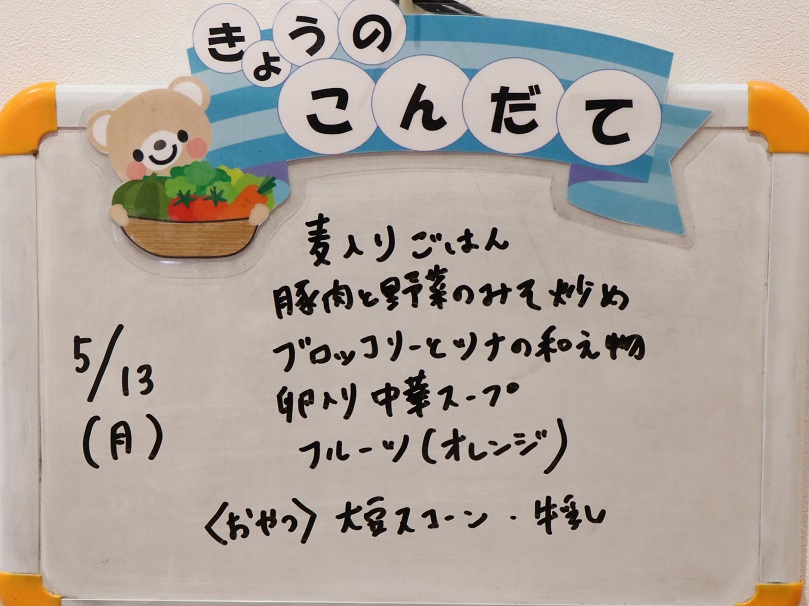 きょうの
こんだて
麦入りごはん
豚肉と野菜のみそ炒め
ブロッコリーとツナの和え物
卵入り中華スープ
フルーツ(オレンジ)
5/13
(月)
〈おやつ〉大豆スコーン・牛乳